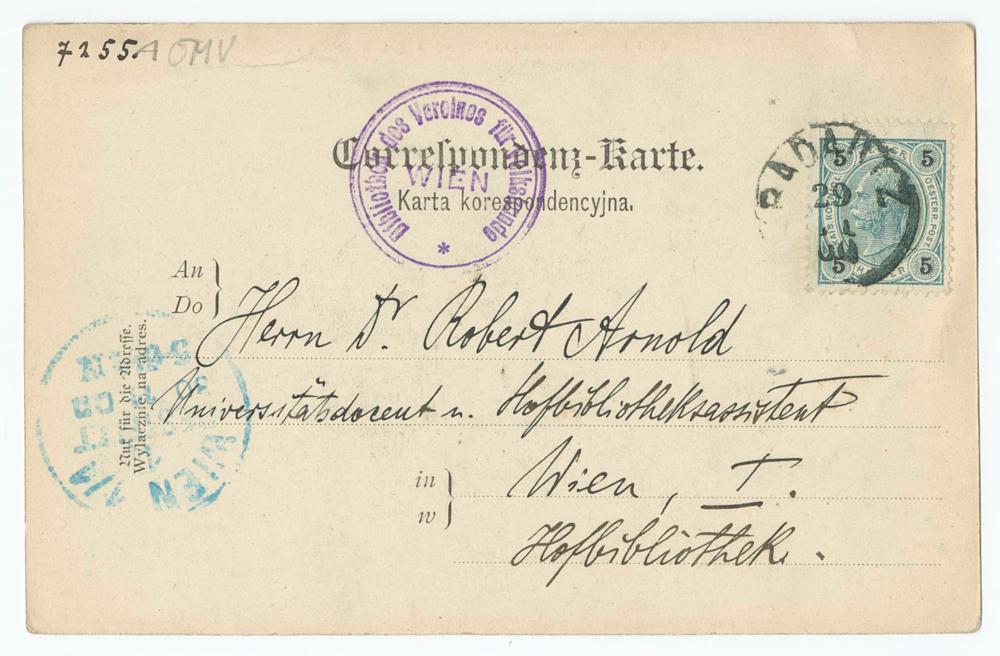 7255 A ÖMV
Bibliothek des Vereines für Volkskunde
WIEN
*
Correspondenz-Karte.
Karta korespondencyjna.
RADAUTZ
29
5 5
5 5
OESTERR. POST
HELLER
An
Do
Herrn Dr. Robert Arnold
Universitätsdozent u. Hofbibliotheksassistent
in
w
Wien, I.
Hofbibliothek.
Nur für die Adresse.
Wyłacznie na adres.
WIEN
30